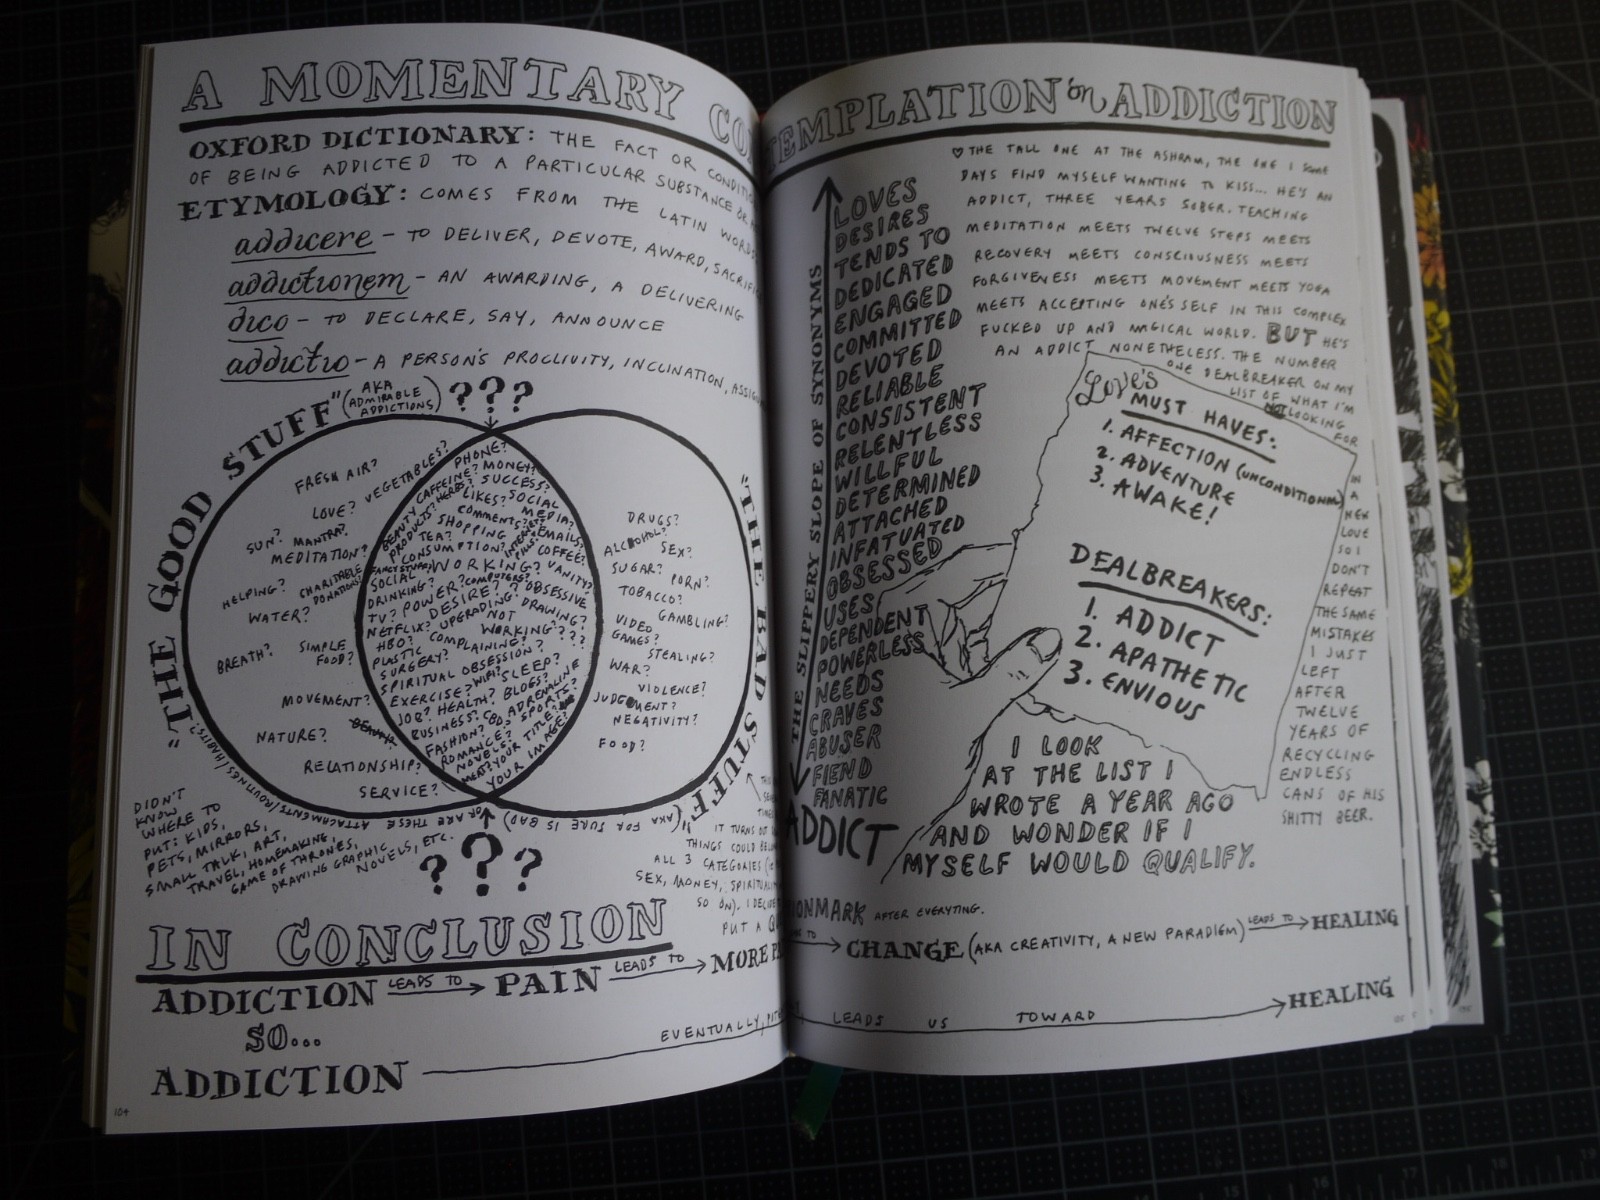 A MOMENTARY CONTEMPLATION on ADDICTION
OXFORD DICTIONARY: THE FACT OR CONDITI
OF BEING ADDICTED TO A PARTICULAR SUBSTANCE OR
ETYMOLOGY: COMES FROM THE LATIN WORDS
addicere - TO DELIVER, DEVOTE, AWARD, SACRIFI
addictionem - AN AWARDING, A DELIVERING
dico - TO DECLARE, SAY, ANNOUNCE
addictio - A PERSON'S PROCLIVITY, INCLINATION, ASSIG
"THE GOOD STUFF" (AKA ADMIRABLE ADDICTIONS)
???
FRESH AIR?
VEGETABLES?
LOVE?
SUN?
MANTRA?
MEDITATION?
HELPING?
CHARITABLE DONATIONS?
WATER?
BREATH?
SIMPLE FOOD?
MOVEMENT?
NATURE?
RELATIONSHIP?
SERVICE?
PHONE?
CAFFEINE? MONEY?
BEAUTY PRODUCTS? HERBS? SUCCESS?
LIKES? SOCIAL MEDIA?
COMMENTS?
TEA? SHOPPING INTERNET? EMAILS?
CONSUMPTION? PILLS? COFFEE?
FANCY STUFF? WORKING? VANITY?
SOCIAL DRINKING? COMPUTERS?
TV? POWER? OBSESSIVE DRAWING?
NETFLIX? DESIRE?
HBO? UPGRADING? NOT WORKING? ???
PLASTIC SURGERY? COMPLAINING?
SPIRITUAL OBSESSION?
EXERCISE? WIFI? SLEEP?
JOB? HEALTH? BLOGS?
BUSINESS? ADRENALINE SPORTS?
FASHION?
ROMANCE NOVELS?
MEAT? YOUR TITLE?
YOUR IMAGE?
DRUGS?
ALCOHOL?
SEX?
SUGAR?
PORN?
TOBACCO?
GAMBLING?
VIDEO GAMES?
STEALING?
WAR?
VIOLENCE?
JUDGEMENT?
NEGATIVITY?
FOOD?
"THE BAD STUFF" (AKA FOR SURE IS BAD)
OR ARE THESE ATTACHMENTS/ROUTINES/HABITS?
DIDN'T
KNOW
WHERE TO
PUT: KIDS,
PETS, MIRRORS,
SMALL TALK, ART,
TRAVEL, HOMEMAKING,
GAME OF THRONES,
DRAWING GRAPHIC
NOVELS, ETC.
???
IT TURNS OUT
THINGS COULD BELO
ALL 3 CATEGORIES
SEX, MONEY, SPIRITUALI
SO ON). I DECIDE
PUT A QUE
IONMARK AFTER EVERYTING.
IN CONCLUSION
ADDICTION LEADS TO PAIN LEADS TO MORE P
CHANGE (AKA CREATIVITY, A NEW PARADIGM) LEADS TO HEALING
SO...
ADDICTION EVENTUALLY, LEADS US TOWARD HEALING
104
THE SLIPPERY SLOPE OF SYNONYMS
LOVES
DESIRES
TENDS TO
DEDICATED
ENGAGED
COMMITTED
DEVOTED
RELIABLE
CONSISTENT
RELENTLESS
WILLFUL
DETERMINED
ATTACHED
INFATUATED
OBSESSED
USES
DEPENDENT
POWERLESS
NEEDS
CRAVES
ABUSER
FIEND
FANATIC
ADDICT
THE TALL ONE AT THE ASHRAM, THE ONE I SOME
DAYS FIND MYSELF WANTING TO KISS... HE'S AN
ADDICT, THREE YEARS SOBER. TEACHING
MEDITATION MEETS TWELVE STEPS MEETS
RECOVERY MEETS CONSCIOUSNESS MEETS
FORGIVENESS MEETS MOVEMENT MEETS YOGA
MEETS ACCEPTING ONE'S SELF IN THIS COMPLEX
FUCKED UP AND MAGICAL WORLD. BUT HE'S
AN ADDICT NONETHELESS. THE NUMBER
ONE DEALBREAKER ON MY
LIST OF WHAT I'M
NOT LOOKING
FOR
IN
A
NEW
LOVE
SO I
DON'T
REPEAT
THE SAME
MISTAKES
I JUST
LEFT
AFTER
TWELVE
YEARS OF
RECYCLING
ENDLESS
CANS OF HIS
SHITTY BEER.
Love's
MUST HAVES:
1. AFFECTION (UNCONDITIONAL)
2. ADVENTURE
3. AWAKE!
DEALBREAKERS:
1. ADDICT
2. APATHETIC
3. ENVIOUS
I LOOK
AT THE LIST I
WROTE A YEAR AGO
AND WONDER IF I
MYSELF WOULD QUALIFY.